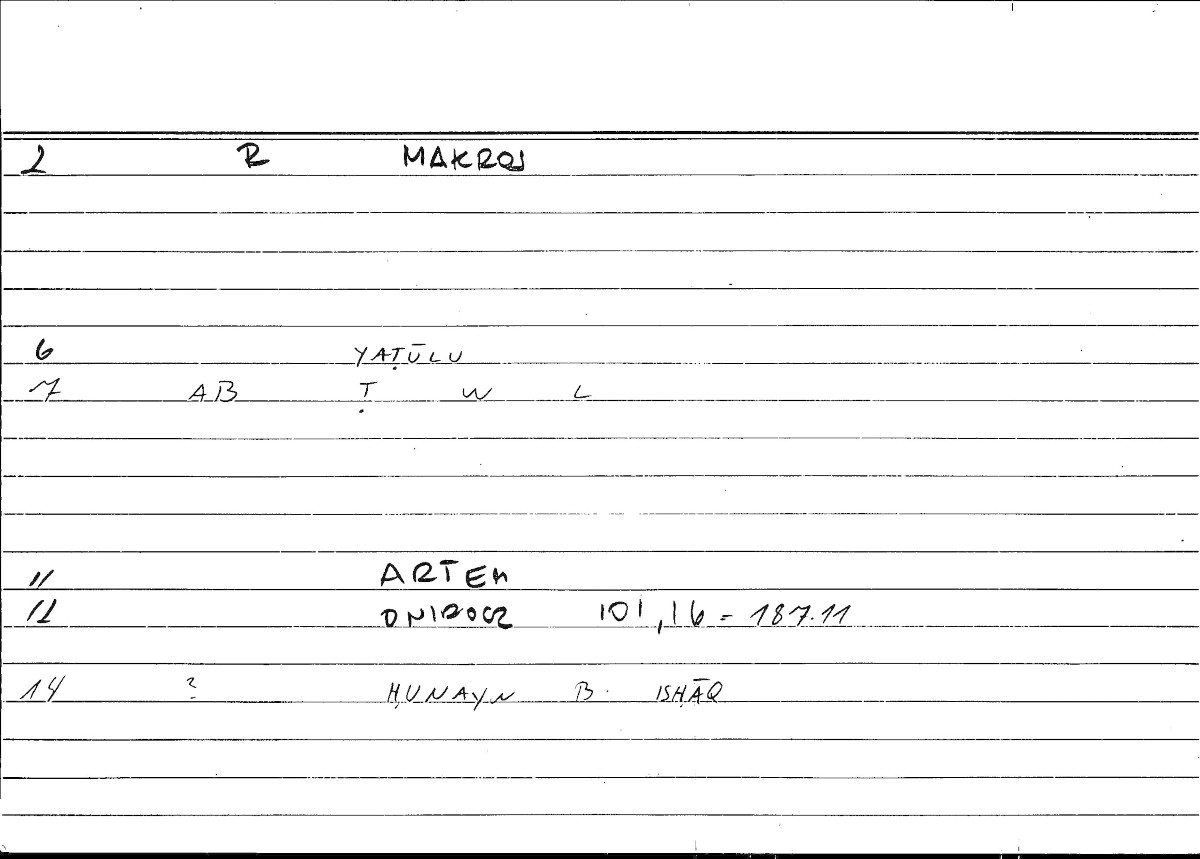 2 R MAKROS
6 YAṬŪLU
7 AB Ṭ W L
11 ARTEM
12 ONIROCR 101,16 = 187.11
14 ? ḤUNAYN B. ISḤĀQ